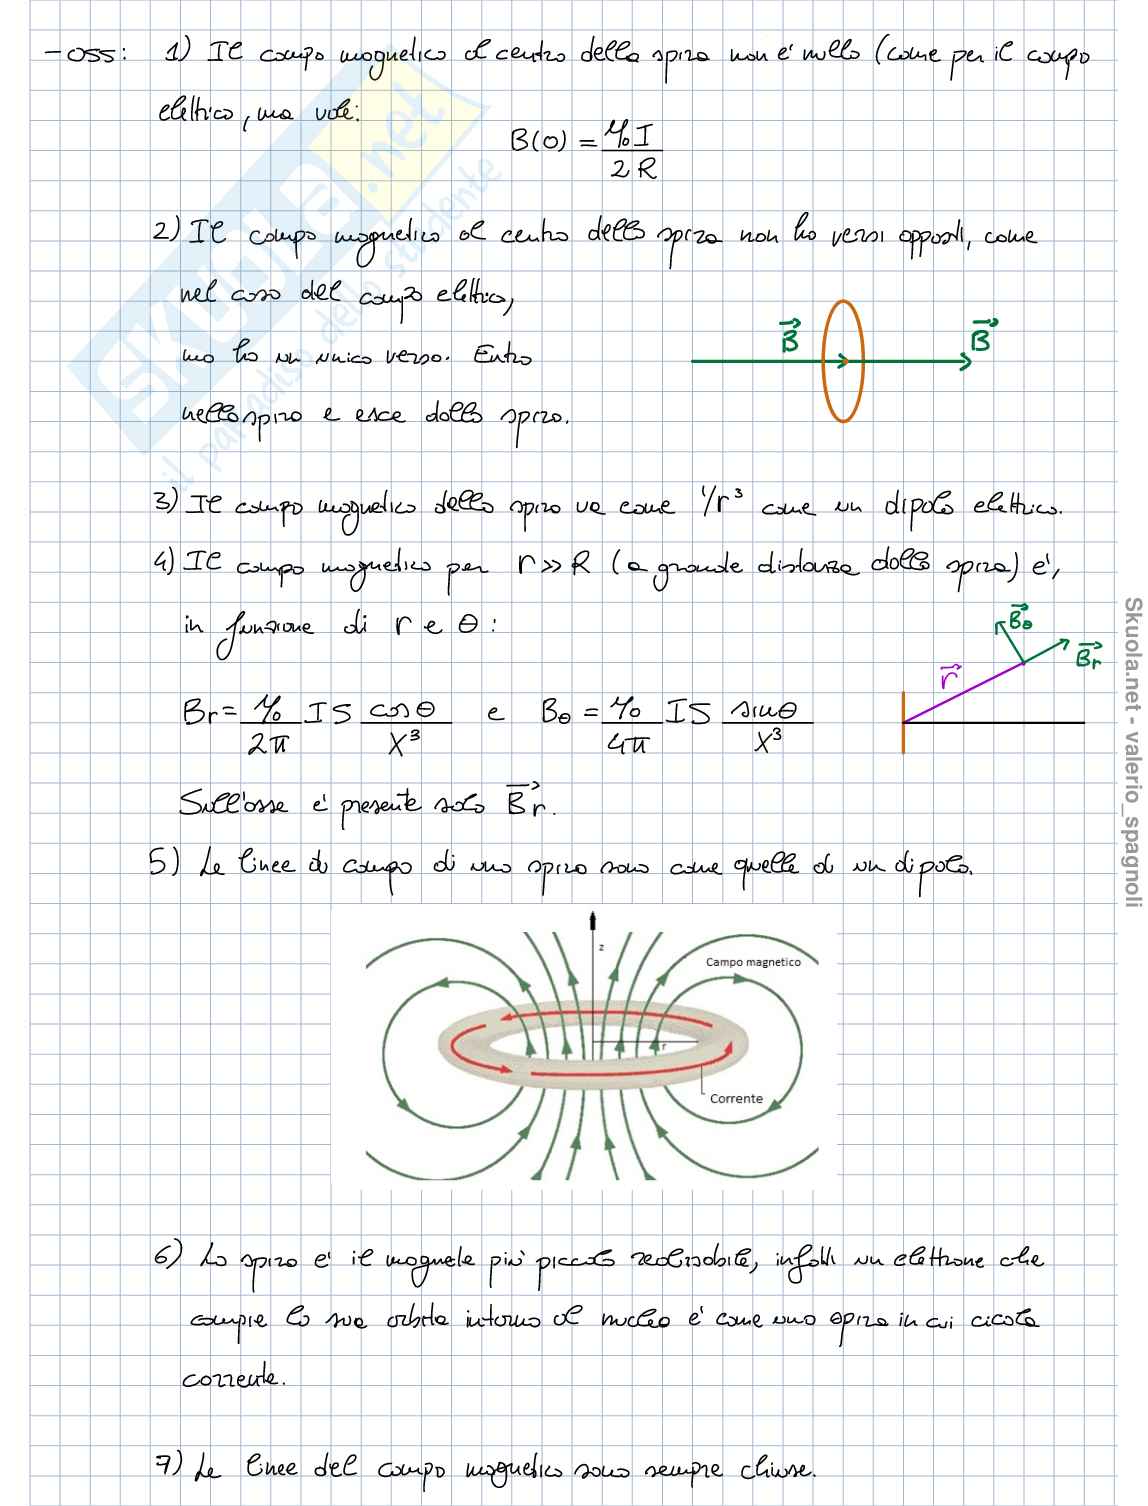 - OSS: 1) Il campo magnetico al centro della spira non è nullo (come per il campo
elettrico, ma vale:
B(0) = μ₀I / 2R
2) Il campo magnetico al centro della spira non ha versi opposti, come
nel caso del campo elettrico,
ma ha un unico verso. Entra
nella spira e esce dalla spira.
B⃗ B⃗
3) Il campo magnetico della spira va come 1/r³ come un dipolo elettrico.
4) Il campo magnetico per r >> R (a grande distanza dalla spira) è,
in funzione di r e θ:
B⃗θ
B⃗r
r⃗
Br = μ₀/2π IS cosθ/x³ e Bθ = μ₀/4π IS sinθ/x³
Sull'asse è presente solo B⃗r.
5) Le linee di campo di una spira sono come quelle di un dipolo.
z
Campo magnetico
r
Corrente
6) La spira è il magnete più piccolo realizzabile, infatti un elettrone che
compie la sua orbita intorno al nucleo è come una spira in cui cicola
corrente.
7) Le linee del campo magnetico sono sempre chiuse.
SKUOLA.net
il paradiso dello studente
Skuola.net - valerio_spagnoli